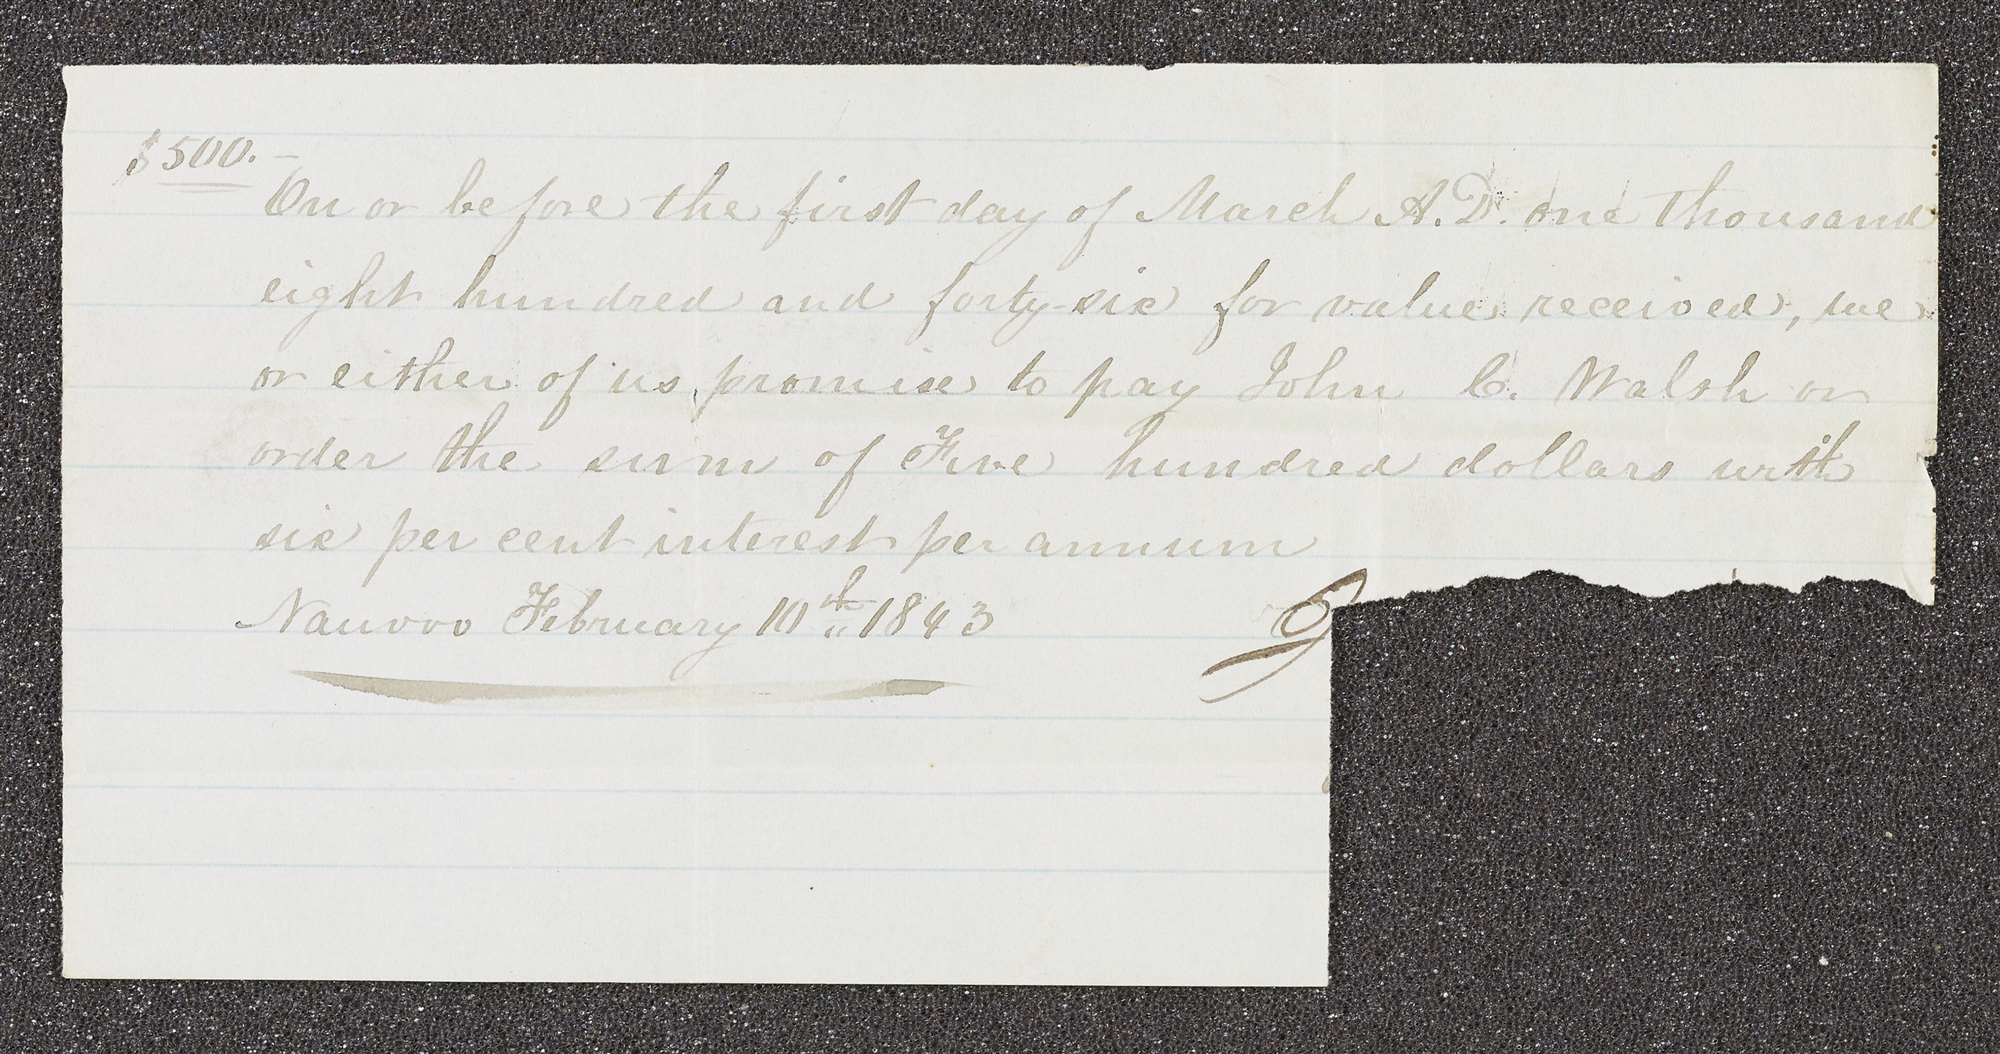 $500.—
On or before the first day of March A.D. one thousand
eight hundred and forty-six for value received, we
or either of us promise to pay John C. Walsh or
order the sum of Five hundred dollars with
six per cent interest per annum
Nauvoo February 10th 1843